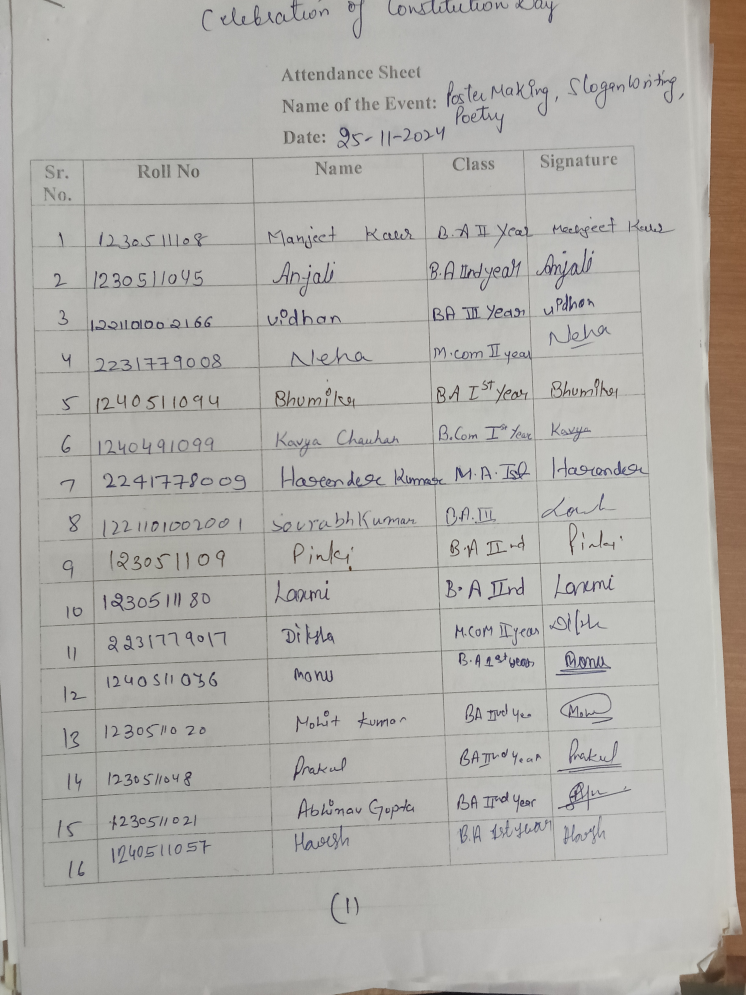 Celebration of Constitution Day
Attendance Sheet
Name of the Event: Poster Making, Slogan Writing,
Poetry
Date: 25-11-2024
Sr. No. Roll No Name Class Signature
1 1230511108 Manjeet Kaur B.A II Year Manjeet Kaur
2 1230511045 Anjali B.A IInd year Anjali
3 1221101002166 Vidhan BA III Year Vidhan
4 2231779008 Neha M.com II year Neha
5 1240511094 Bhumika BA Ist Year Bhumika
6 1240491099 Kavya Chauhan B.Com Ist Year Kavya
7 2241778009 Harender Kumar M.A. Ist Harender
8 1221101002001 Sourabh Kumar B.A.III
9 123051109 Pinki B.A IInd Pinki
10 1230511180 Laxmi B.A IInd Laxmi
11 2231779017 Diksha M.COM II year
12 1240511036 Monu B.A 1st year Monu
13 1230511020 Mohit Kumar BA IInd Yea
14 1230511048 Prakul BA IInd Year Prakul
15 1230511021 Abhinav Gupta BA IInd Year
16 1240511057 Harsh B.A 1st year Harsh
(1)